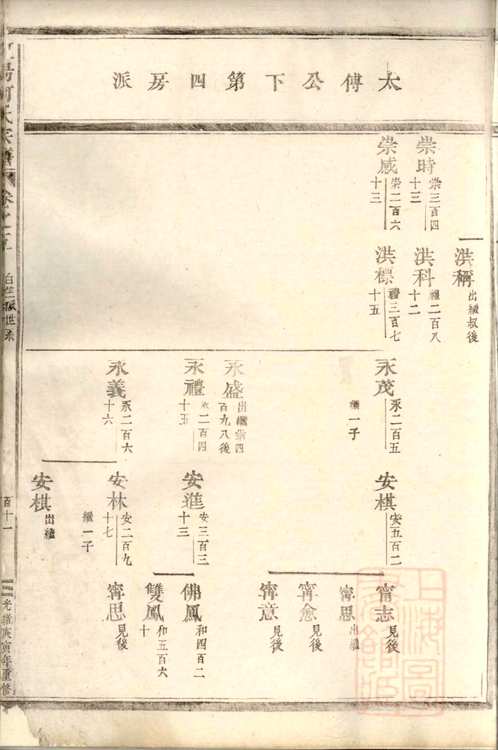 太傅公下第四房派
崇時 崇三百四十三
崇咸 崇二百六十三
洪稱 出繼叔後
洪科 禮二百八十二
洪標 禮三百七十五
永茂 永二百五 繼一子
永盛 出繼崇四百九八後
永禮 永二百四十五
永義 永二百六十六
安棋 安五百二
安進 安三百三十三
安林 安二百九十七 繼一子
安棋 出繼
寗志 見後
寗思 出繼
寗愈 見後
寗意 見後
佛鳳 和四百二
雙鳳 和五百六十
寗思 見後
何氏宗譜 卷之五
世系
百十一
光緒庚寅年重修